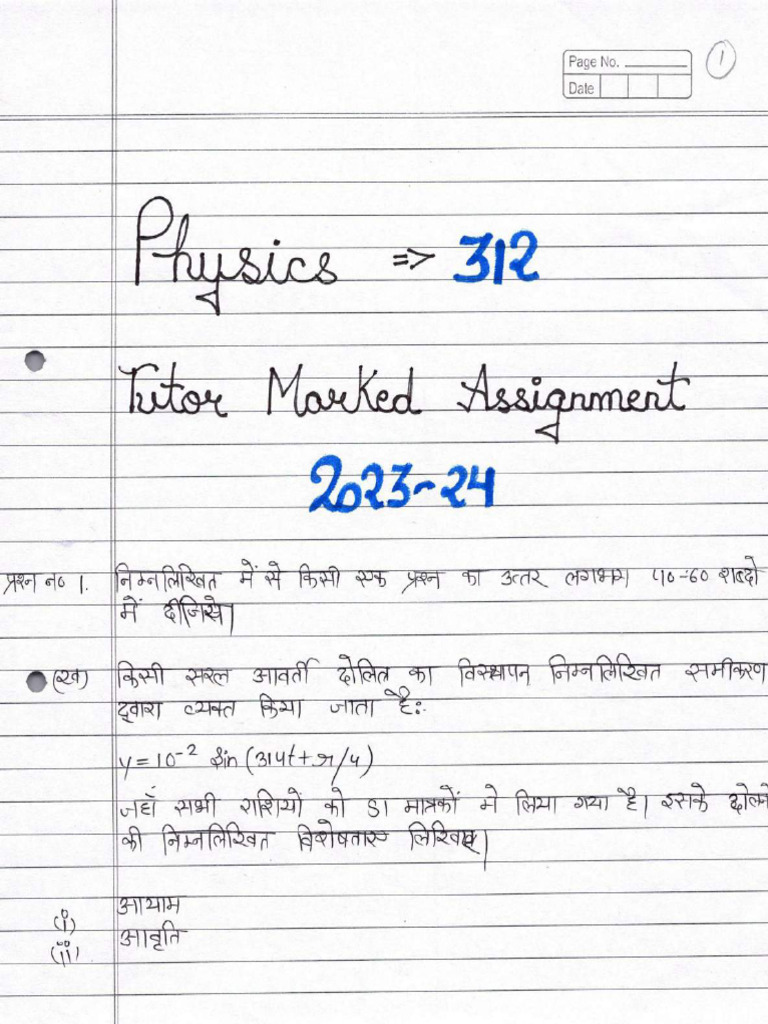 Page No.
1
Date
Physics => 312
Tutor Marked Assignment
2023-24
प्रश्न न० 1. निम्नलिखित में से किसी एक प्रश्न का उत्तर लगभग 40-60 शब्दो
में दीजिये।
(ख) किसी सरल आवर्ती दोलित्र का विस्थापन निम्नलिखित समीकरण
द्वारा व्यक्त किया जाता है:-
y = 10⁻² Sin (314t + π/4)
जहाँ सभी राशियों को SI मात्रकों मे लिया गया है। इसके
की निम्नलिखित विशेषताए लिखिए।
(i) आयाम
(ii) आवृति